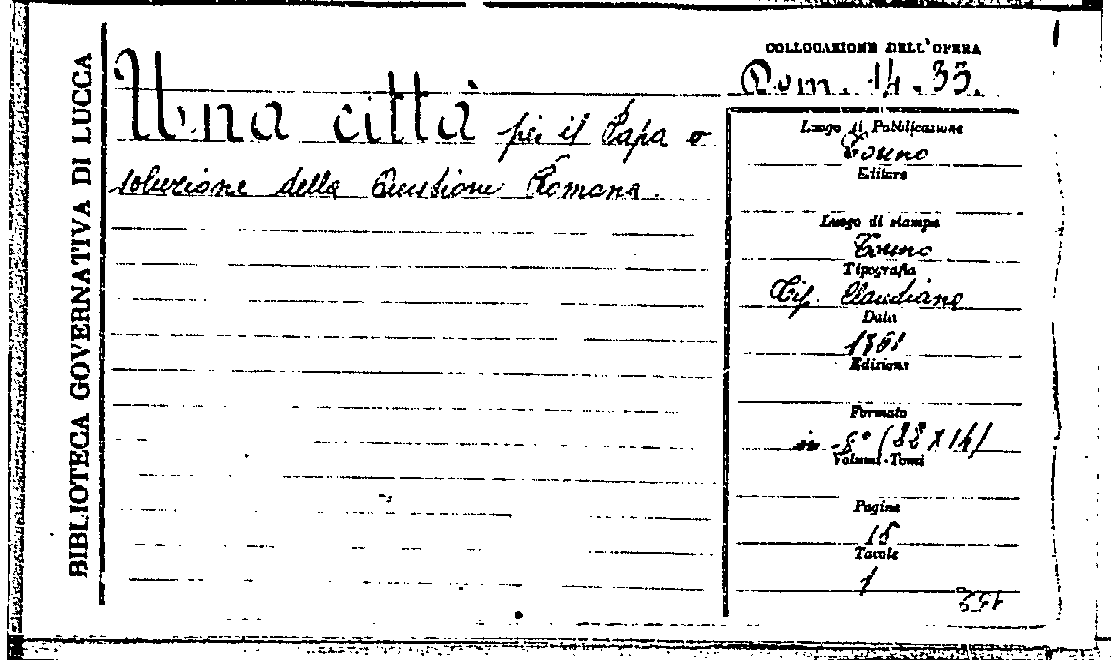 BIBLIOTECA GOVERNATIVA DI LUCCA
Una città per il Papa o
soluzione della Questione Romana.
COLLOCAZIONE DELL'OPERA
Luogo di Pubblicazione
Torino
Editore
Luogo di stampa
Torino
Tipografia
Tip. Claudiana
Data
1861
Edizione
Formato
in-8° (22 x 14)
Volumi-Tomi
Pagine
15
Tavole
1